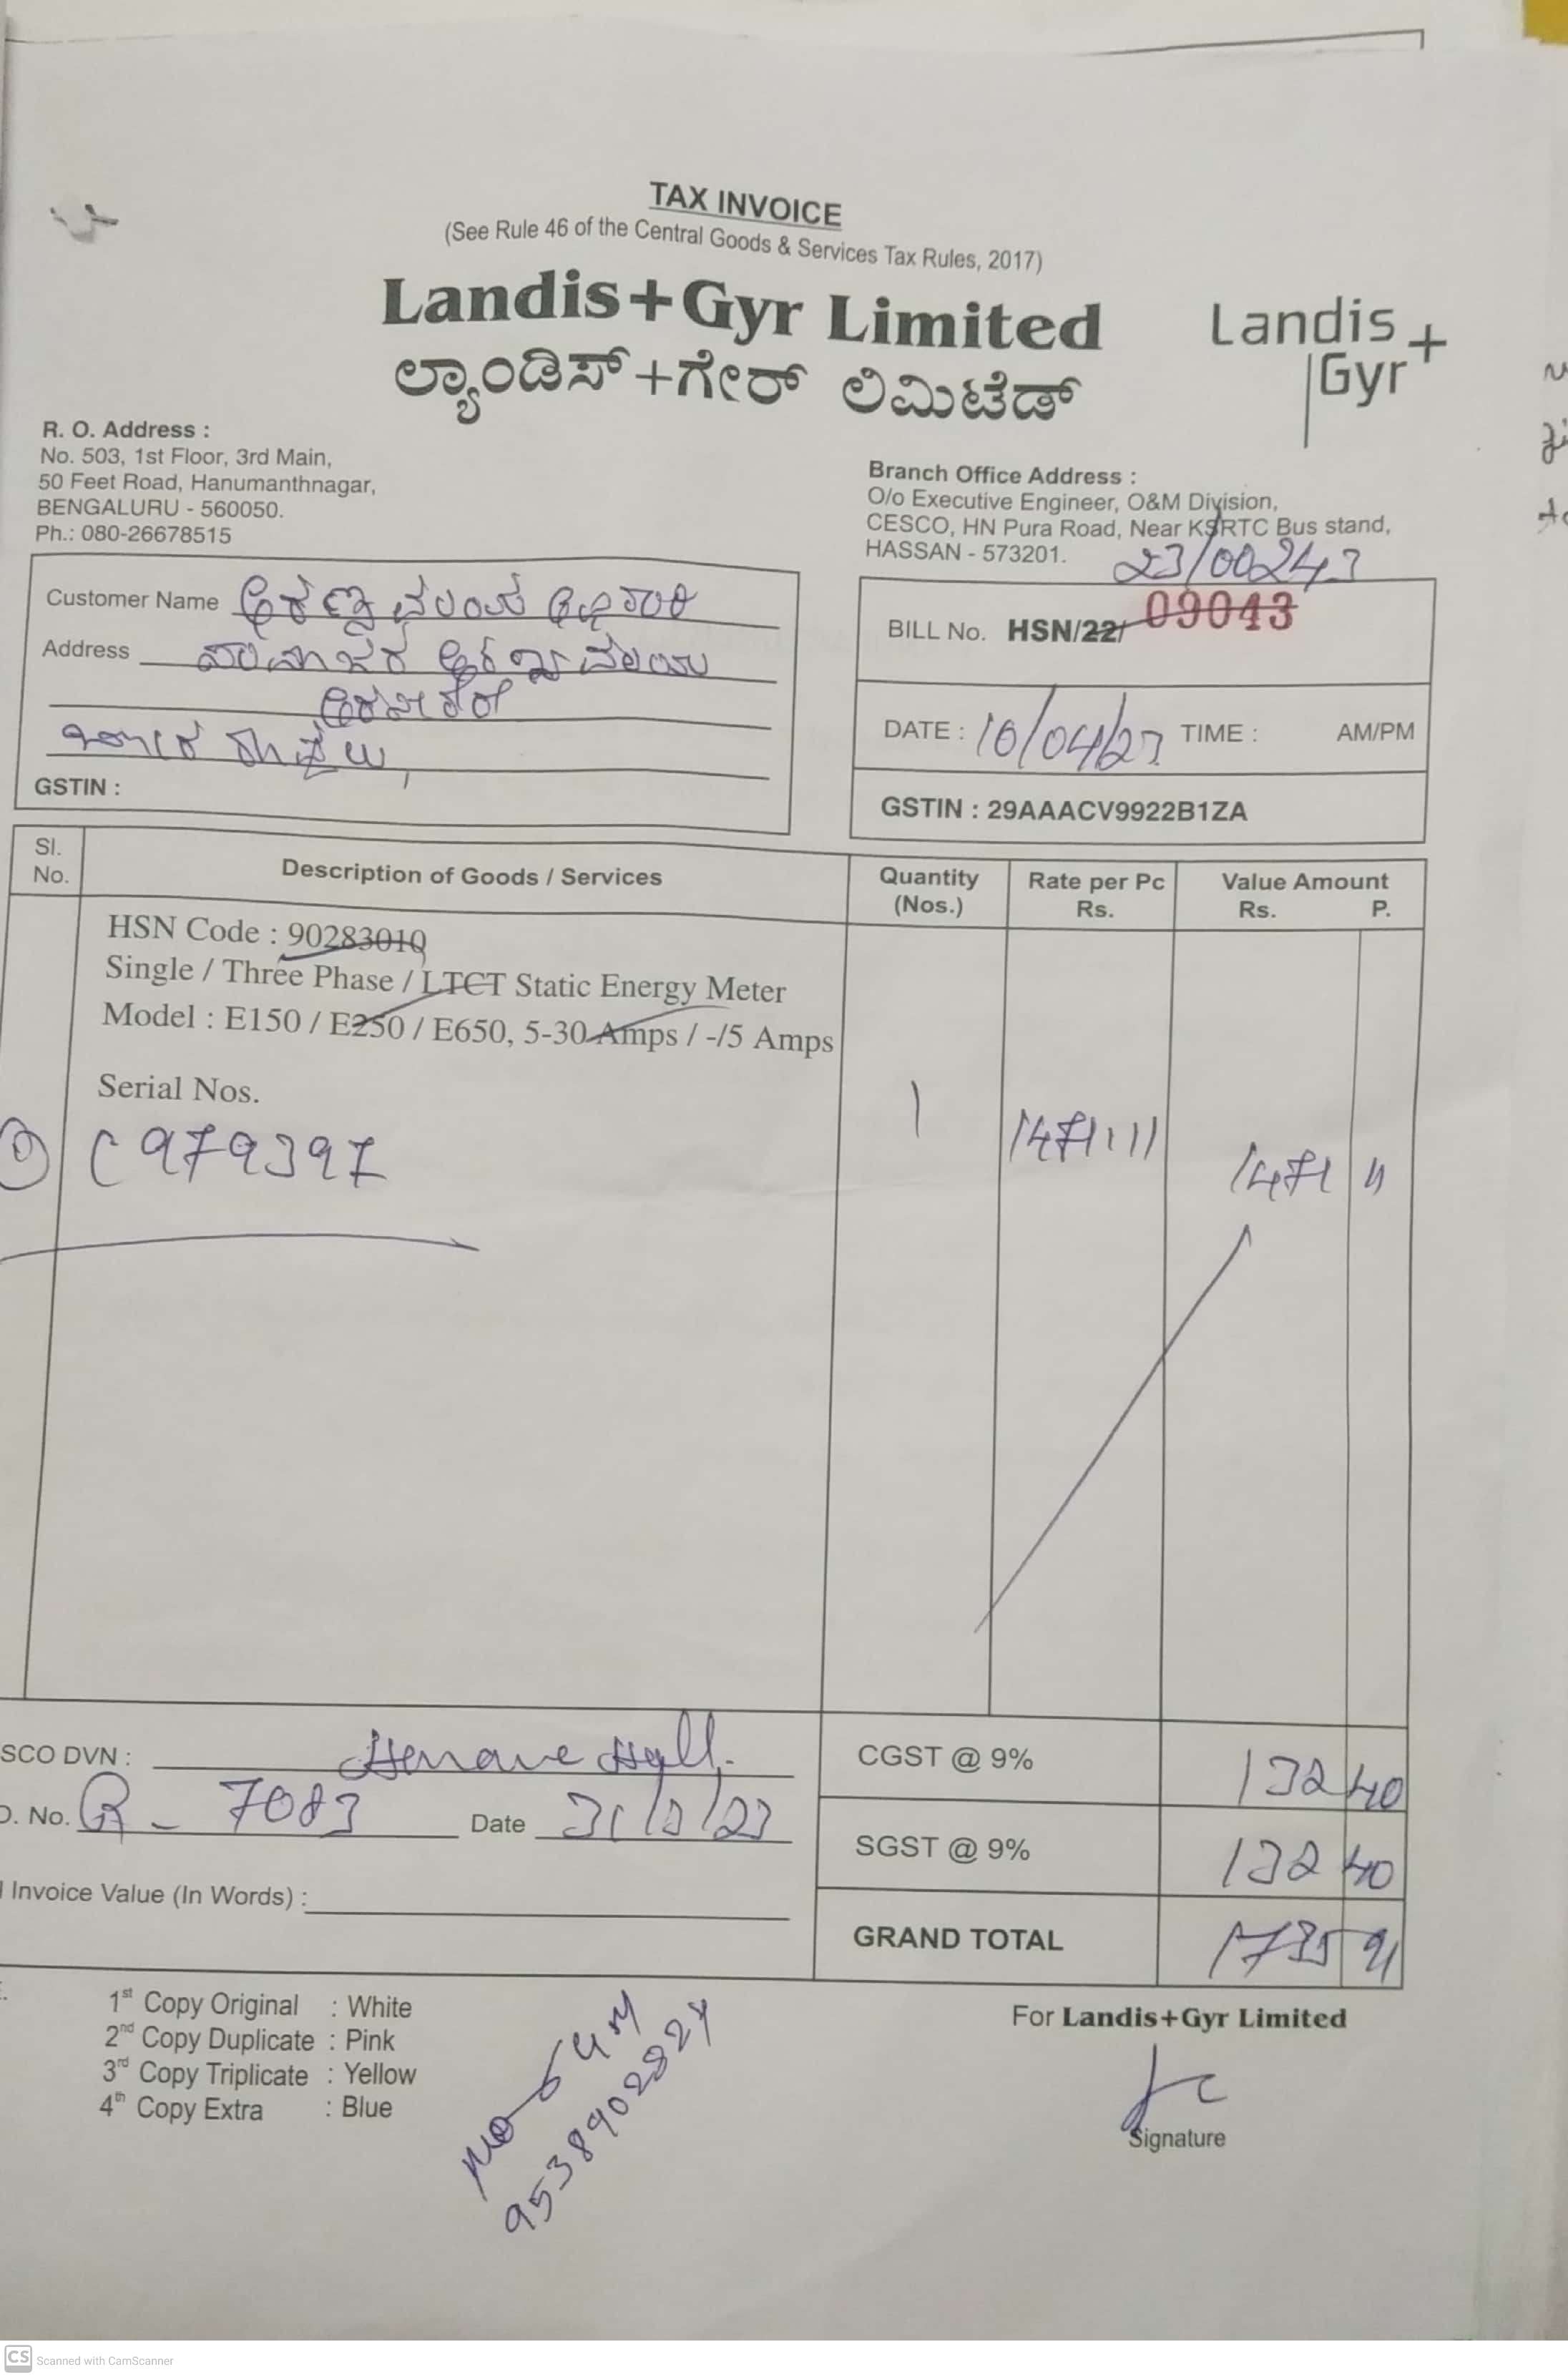 TAX INVOICE
(See Rule 46 of the Central Goods & Services Tax Rules, 2017)
Landis+Gyr Limited
ಲ್ಯಾಂಡಿಸ್+ಗೇರ್ ಲಿಮಿಟೆಡ್
Landis+
Gyr
R. O. Address :
No. 503, 1st Floor, 3rd Main,
50 Feet Road, Hanumanthnagar,
BENGALURU - 560050.
Ph.: 080-26678515
Branch Office Address :
O/o Executive Engineer, O&M Division,
CESCO, HN Pura Road, Near KSRTC Bus stand,
HASSAN - 573201.
23/00243
Customer Name
Address
GSTIN :
BILL No. HSN/22/ 09043
DATE : 10/04/23 TIME : AM/PM
GSTIN : 29AAACV9922B1ZA
Sl. No. Description of Goods / Services Quantity (Nos.) Rate per Pc Rs. Value Amount Rs. P.
HSN Code : 90283010
Single / Three Phase / LTCT Static Energy Meter
Model : E150 / E250 / E650, 5-30 Amps / -/5 Amps
Serial Nos.
1 C979397 1 1471.11 1471 11
SCO DVN :
CGST @ 9% 132 40
O. No. R - 7083 Date 31/3/23
SGST @ 9% 132 40
Invoice Value (In Words) :
GRAND TOTAL 1735 91
1st Copy Original : White
2nd Copy Duplicate : Pink
3rd Copy Triplicate : Yellow
4th Copy Extra : Blue
For Landis+Gyr Limited
Signature
CS Scanned with CamScanner